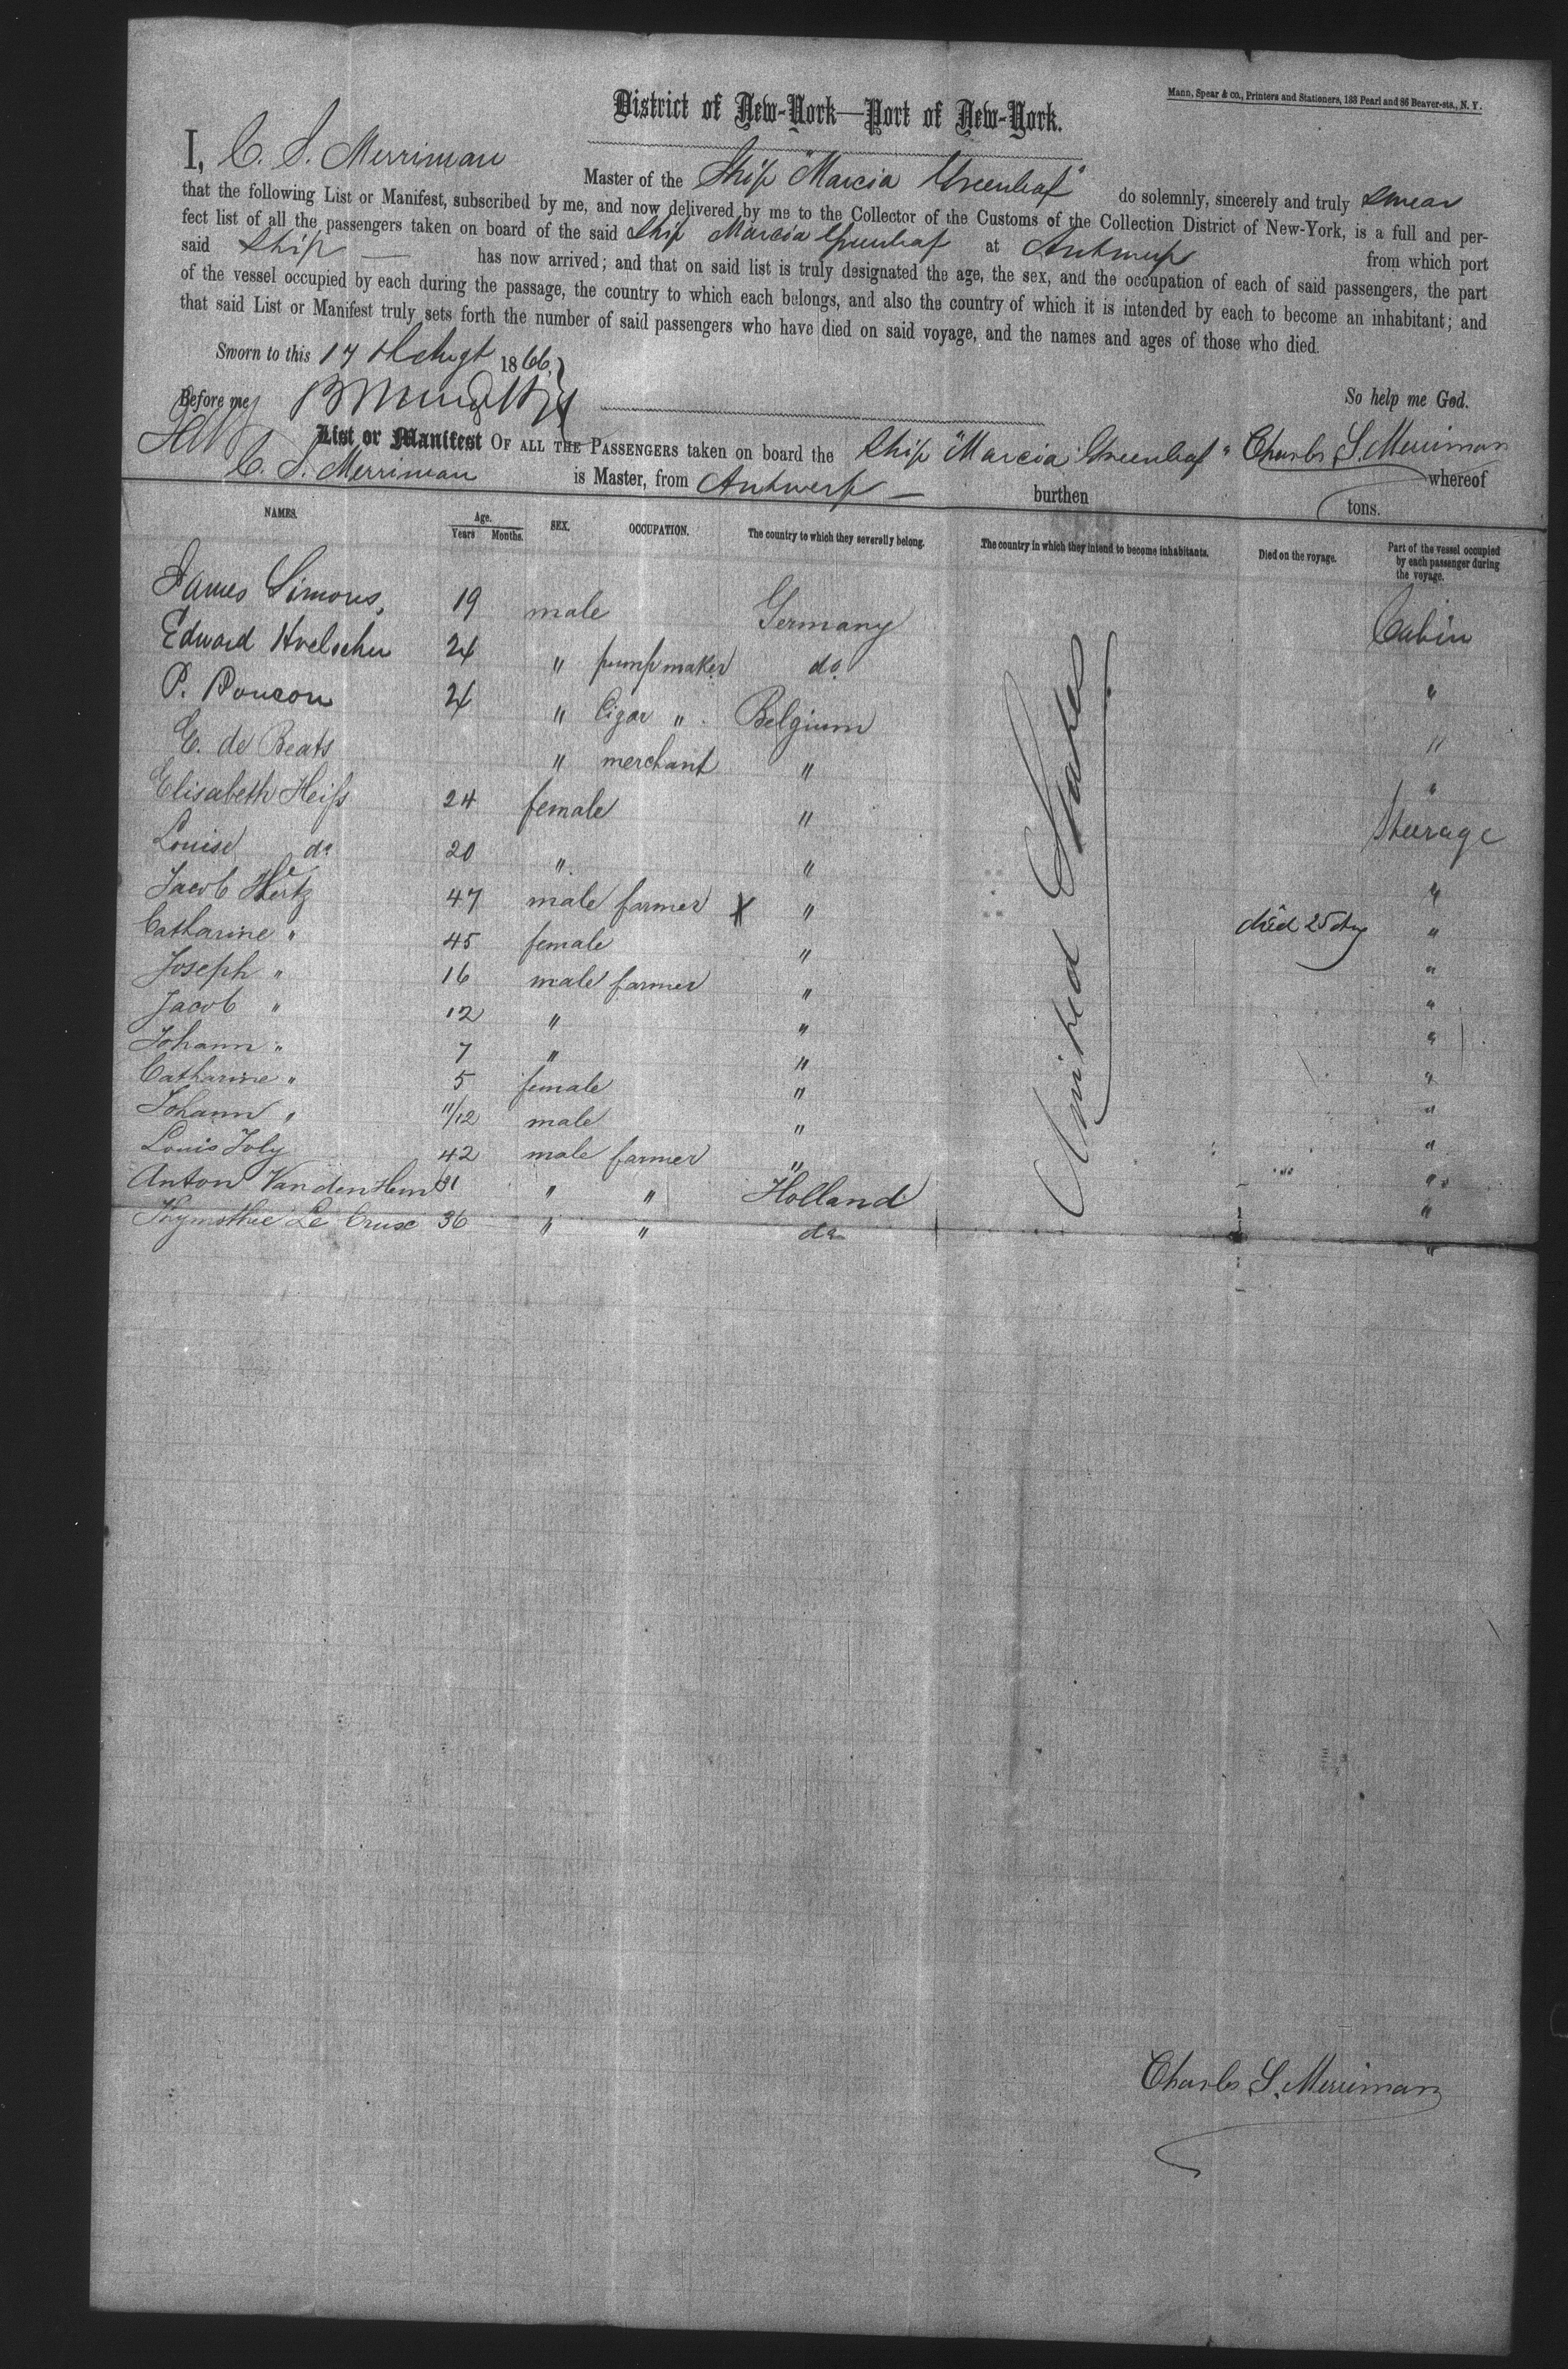 Mann, Spear & co., Printers and Stationers, 183 Pearl and 86 Beaver-sts., N. Y.
District of New-York—Port of New-York.
I, C. S. Merriman Master of the Ship "Marcia Greenleaf" do solemnly, sincerely and truly swear
that the following List or Manifest, subscribed by me, and now delivered by me to the Collector of the Customs of the Collection District of New-York, is a full and per-
fect list of all the passengers taken on board of the said Ship Marcia Greenleaf at Antwerp from which port
said Ship — has now arrived; and that on said list is truly designated the age, the sex, and the occupation of each of said passengers, the part
of the vessel occupied by each during the passage, the country to which each belongs, and also the country of which it is intended by each to become an inhabitant; and
that said List or Manifest truly sets forth the number of said passengers who have died on said voyage, and the names and ages of those who died.
Sworn to this 17th Augt 1866,
So help me God.
Before me
List or Manifest OF ALL THE PASSENGERS taken on board the Ship "Marcia Greenleaf" Charles S. Merriman whereof
C. S. Merriman is Master, from Antwerp — burthen tons.
NAMES. Age. Years Months. SEX. OCCUPATION. The country to which they severally belong. The country in which they intend to become inhabitants. Died on the voyage. Part of the vessel occupied by each passenger during the voyage.
James Simons, 19 male Germany Cabin
Edward Hoelscher 24 " pump maker do. "
P. Poucon 24 " Cigar " Belgium "
E. de Beats " merchant " "
Elisabeth Heiſs 24 female " Steerage
Louise do 20 " " "
Jacob Hertz 47 male farmer X " died 25 Aug "
Catharine " 45 female " "
Joseph " 16 male farmer " "
Jacob " 12 " " "
Johann " 7 " " "
Catharine " 5 female " "
Johann " 11/12 male " "
Louis Joly 42 male farmer " "
Anton Vanden 31 " " Holland "
Le Cruse 36 " " do "
United States
Charles S. Merriman